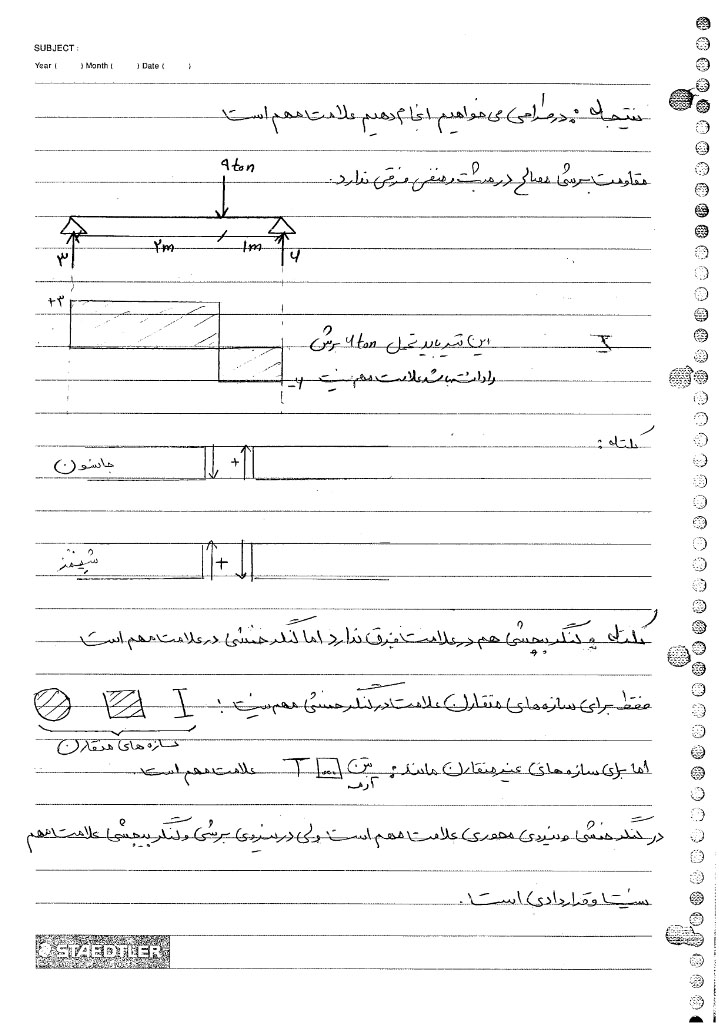 SUBJECT :
Year ( ) Month ( ) Date ( )
نتیجه : در طراحی می خواهیم انجام دهیم علامت مهم است
مقاومت برشی مصالح در مثبت و منفی فرقی ندارد.
۹ ton
۲m ۱m
۳ ۶
+۳
این تیر باید تحمل ۶ ton برش
I
را داشته باشد علامت مهم نیست
-۶
نکته :
جانسون +
شیفنز +
نکته : لنگر پیچشی هم در علامت فرق ندارد اما لنگر خمشی در علامت مهم است
فقط برای سازه های متقارن علامت در لنگر خمشی مهم نیست :
سازه های متقارن
اما برای سازه های غیر متقارن مانند : بتن آرمه T علامت مهم است.
در لنگر خمشی و نیروی محوری علامت مهم است ولی در نیروی برشی و لنگر پیچشی علامت مهم
نیست و قراردادی است.
STAEDTLER